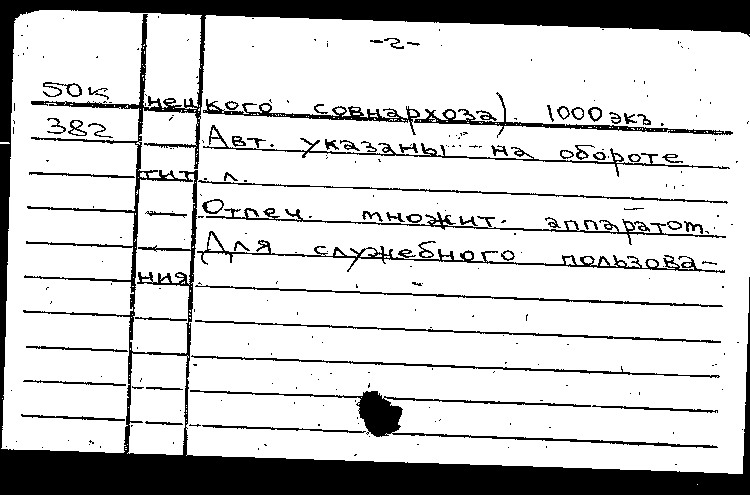 -2-
50к нецкого совнархоза). 1000 экз.
382 Авт. указаны на обороте
тит. л.
Отпеч. множит. аппаратом.
Для служебного пользова-
ния